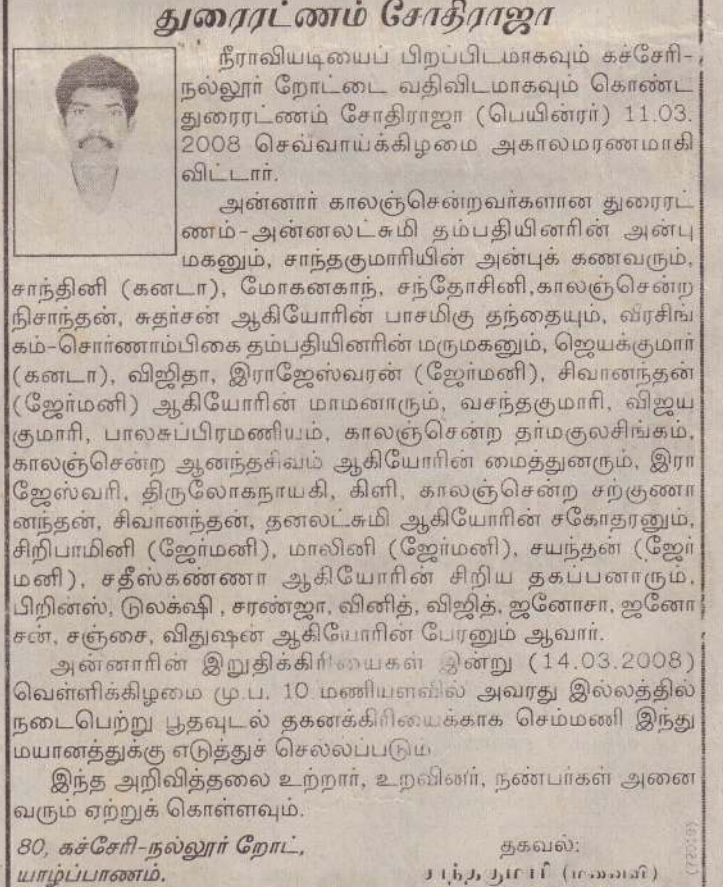 துரைரட்ணம் சோதிராஜா
நீராவியடியைப் பிறப்பிடமாகவும் கச்சேரி-
நல்லூர் றோட்டை வதிவிடமாகவும் கொண்ட
துரைரட்ணம் சோதிராஜா (பெயின்ரர்) 11.03.
2008 செவ்வாய்க்கிழமை அகாலமரணமாகி
விட்டார்.
அன்னார் காலஞ்சென்றவர்களான துரைரட்
ணம்-அன்னலட்சுமி தம்பதியினரின் அன்பு
மகனும், சாந்தகுமாரியின் அன்புக் கணவரும்,
சாந்தினி (கனடா), மோகனகாந், சந்தோசினி,காலஞ்சென்ற
நிசாந்தன், சுதர்சன் ஆகியோரின் பாசமிகு தந்தையும், வீரசிங்
கம்-சொர்ணாம்பிகை தம்பதியினரின் மருமகனும், ஜெயக்குமார்
(கனடா), விஜிதா, இராஜேஸ்வரன் (ஜேர்மனி), சிவானந்தன்
(ஜேர்மனி) ஆகியோரின் மாமனாரும், வசந்தகுமாரி, விஜய
குமாரி, பாலசுப்பிரமணியம், காலஞ்சென்ற தர்மகுலசிங்கம்,
காலஞ்சென்ற ஆனந்தசிவம் ஆகியோரின் மைத்துனரும், இரா
ஜேஸ்வரி, திருலோகநாயகி, கிளி, காலஞ்சென்ற சற்குணா
னந்தன், சிவானந்தன், தனலட்சுமி ஆகியோரின் சகோதரனும்,
சிறிபாமினி (ஜேர்மனி), மாலினி (ஜேர்மனி), சயந்தன் (ஜேர்
மனி), சதீஸ்கண்ணா ஆகியோரின் சிறிய தகப்பனாரும்,
பிறின்ஸ், டுலக்ஷி , சரண்ஜா, வினித், விஜித், ஜனோசா, ஜனோ
சன், சஞ்சை, விதுஷன் ஆகியோரின் பேரனும் ஆவார்.
அன்னாரின் இறுதிக்கிரியைகள் இன்று (14.03.2008)
வெள்ளிக்கிழமை மு.ப. 10 மணியளவில் அவரது இல்லத்தில்
நடைபெற்று பூதவுடல் தகனக்கிரியைக்காக செம்மணி இந்து
மயானத்துக்கு எடுத்துச் செல்லப்படும்.
இந்த அறிவித்தலை உற்றார், உறவினர், நண்பர்கள் அனை
வரும் ஏற்றுக் கொள்ளவும்.
80, கச்சேரி-நல்லூர் றோட்,
யாழ்ப்பாணம்.
தகவல்:
(மனைவி)